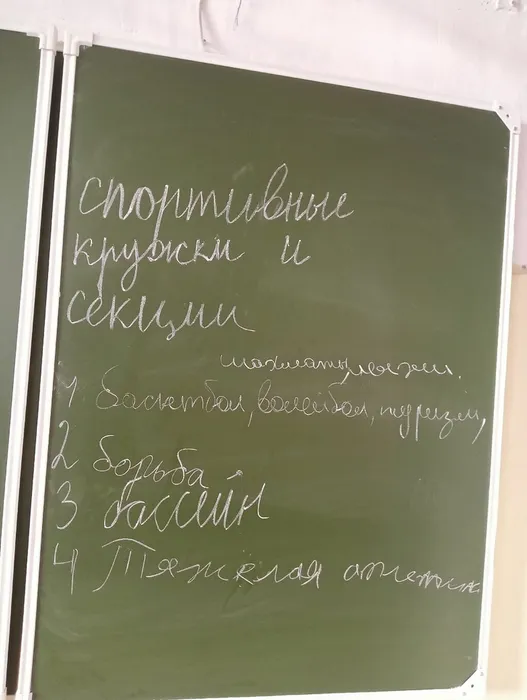 спортивные
кружки и
секции
шахматы, лыжи.
1 баскетбол, волейбол, туризм,
2 борьба
3 бассейн
4 Тяжёлая атлетик